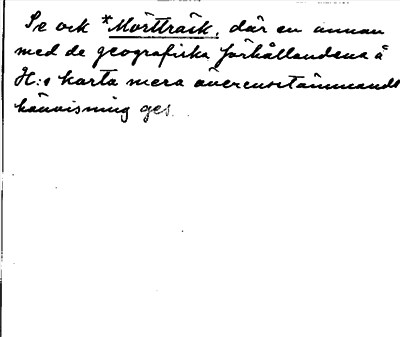 Se ock *Mörtträsk, där en annan
med de geografiska förhållandena å
H:s karta mera överensstämmande
hänvisning ges.